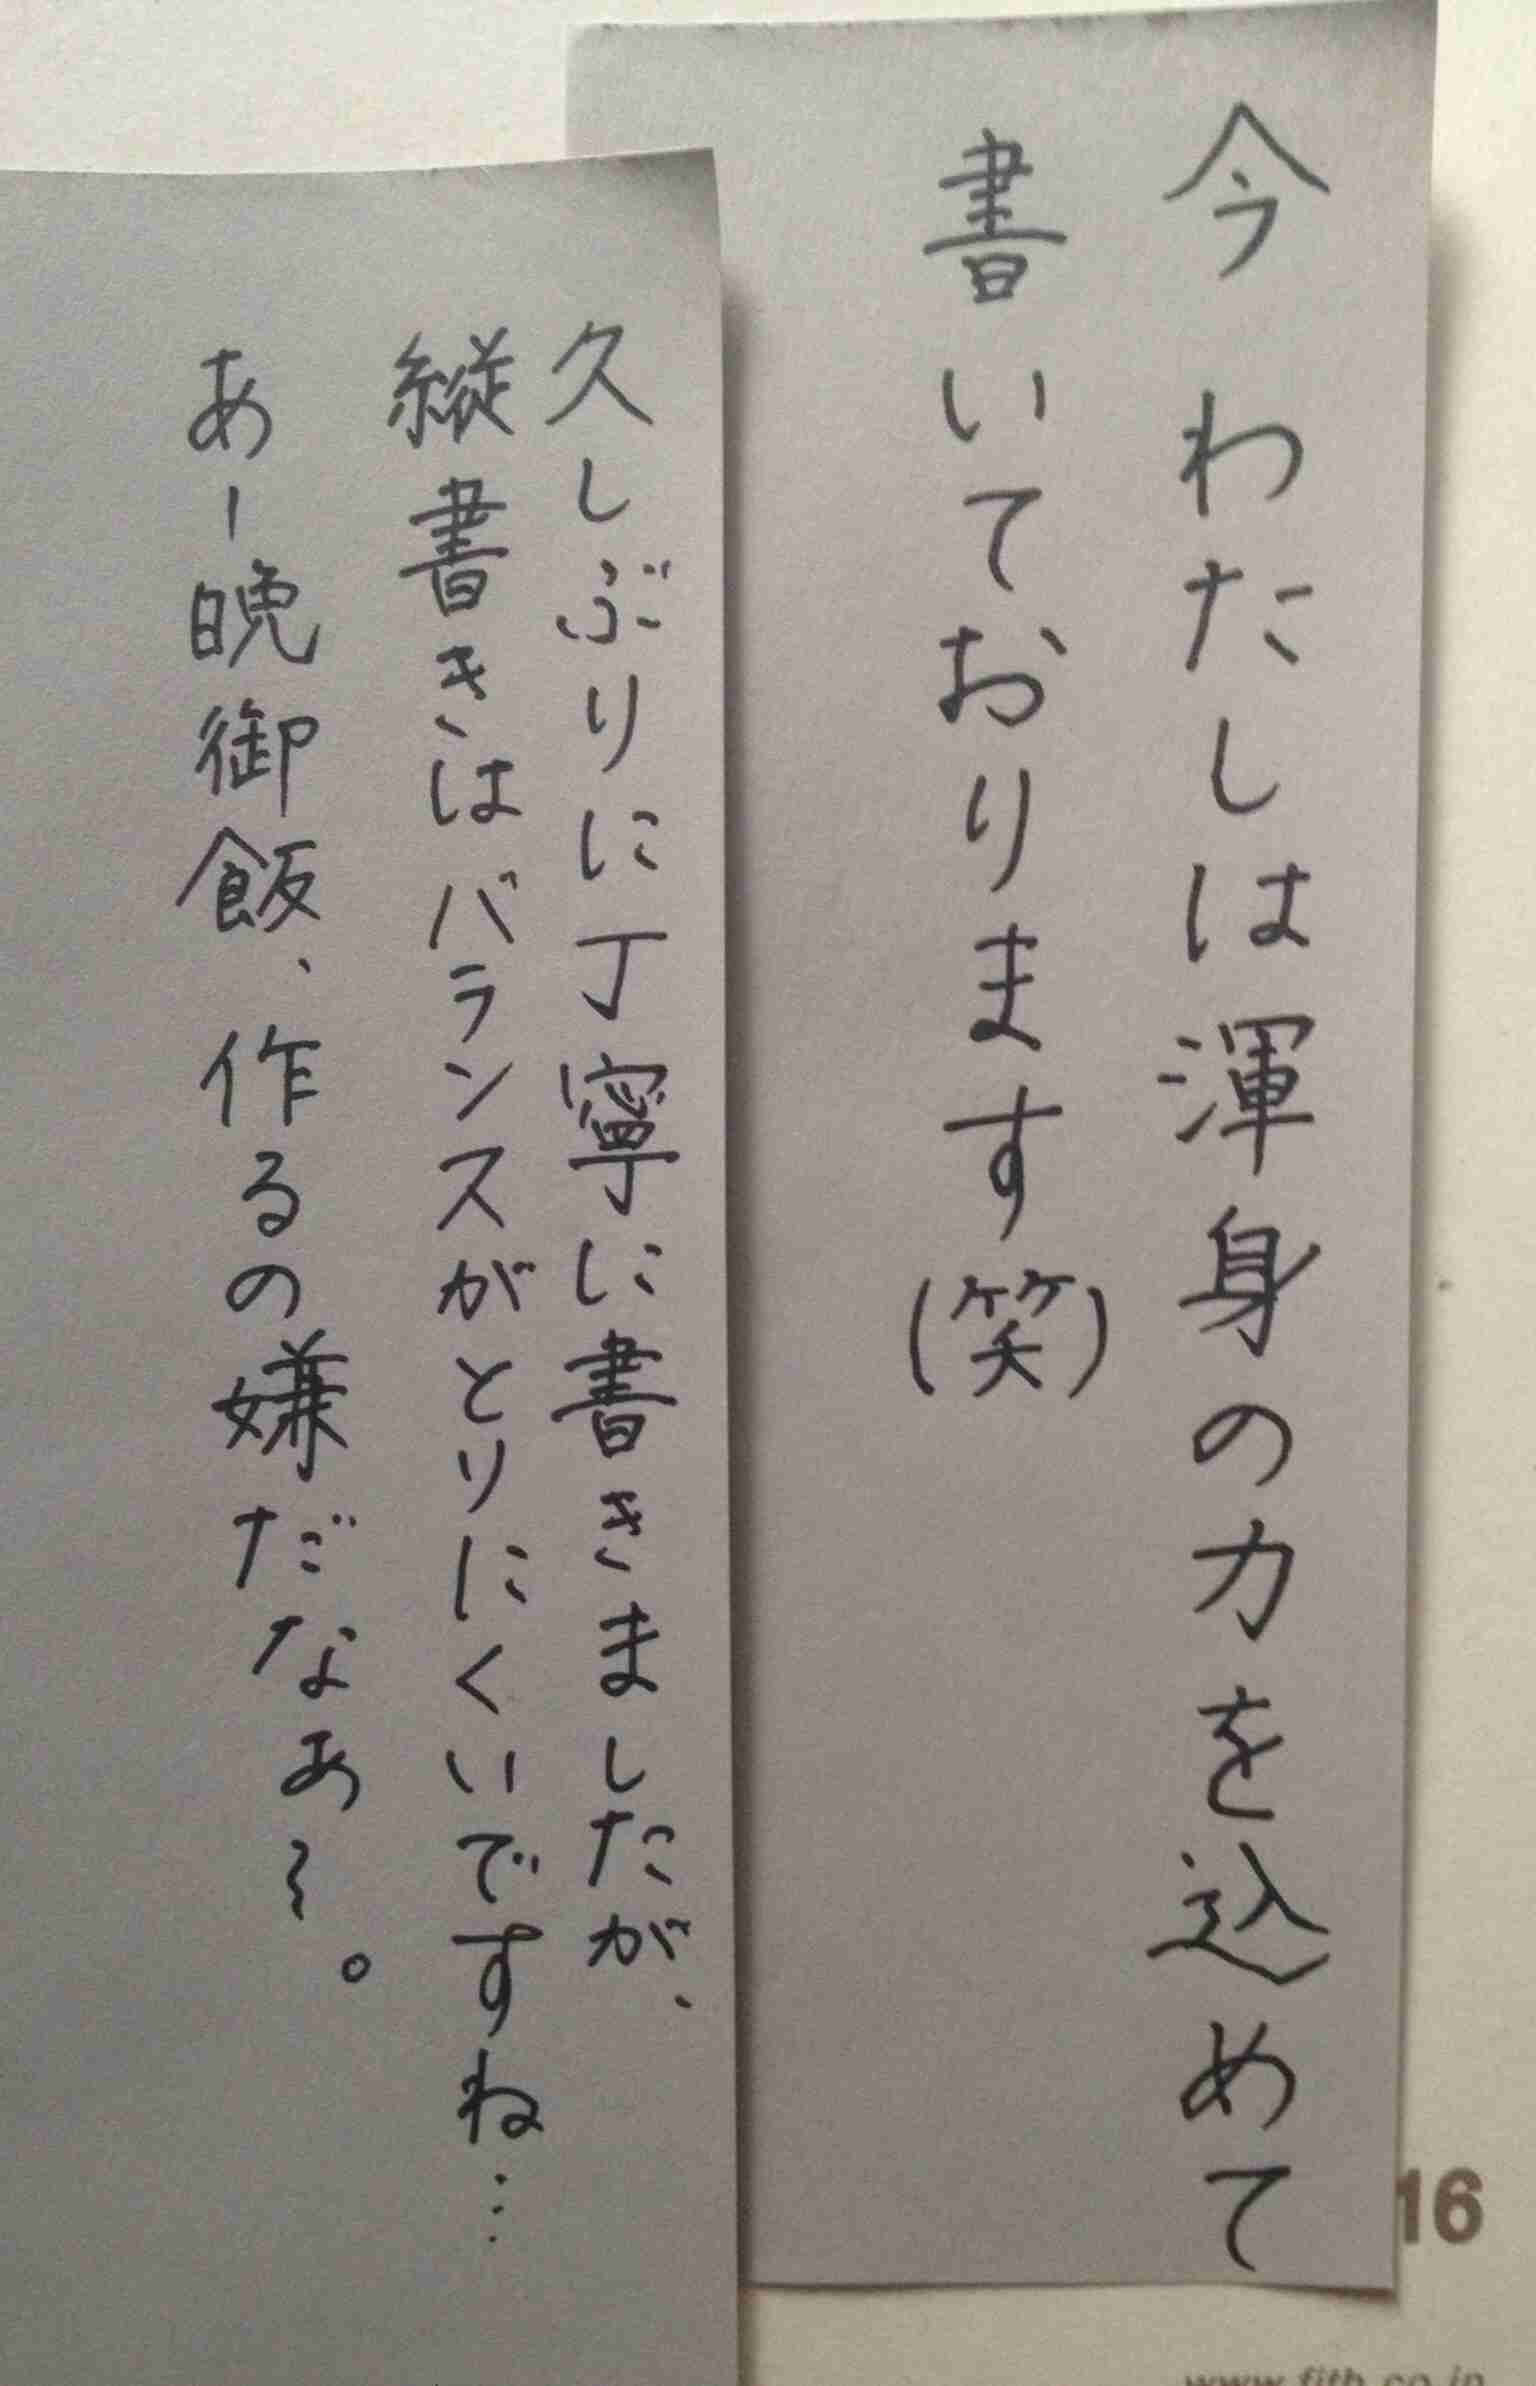 今わたしは渾身の力を込めて
書いております(笑)
久しぶりに丁寧に書きましたが、
縦書きはバランスがとりにくいですね…
あー晩御飯、作るの嫌だなあ〜。
16
www.fith.co.jp